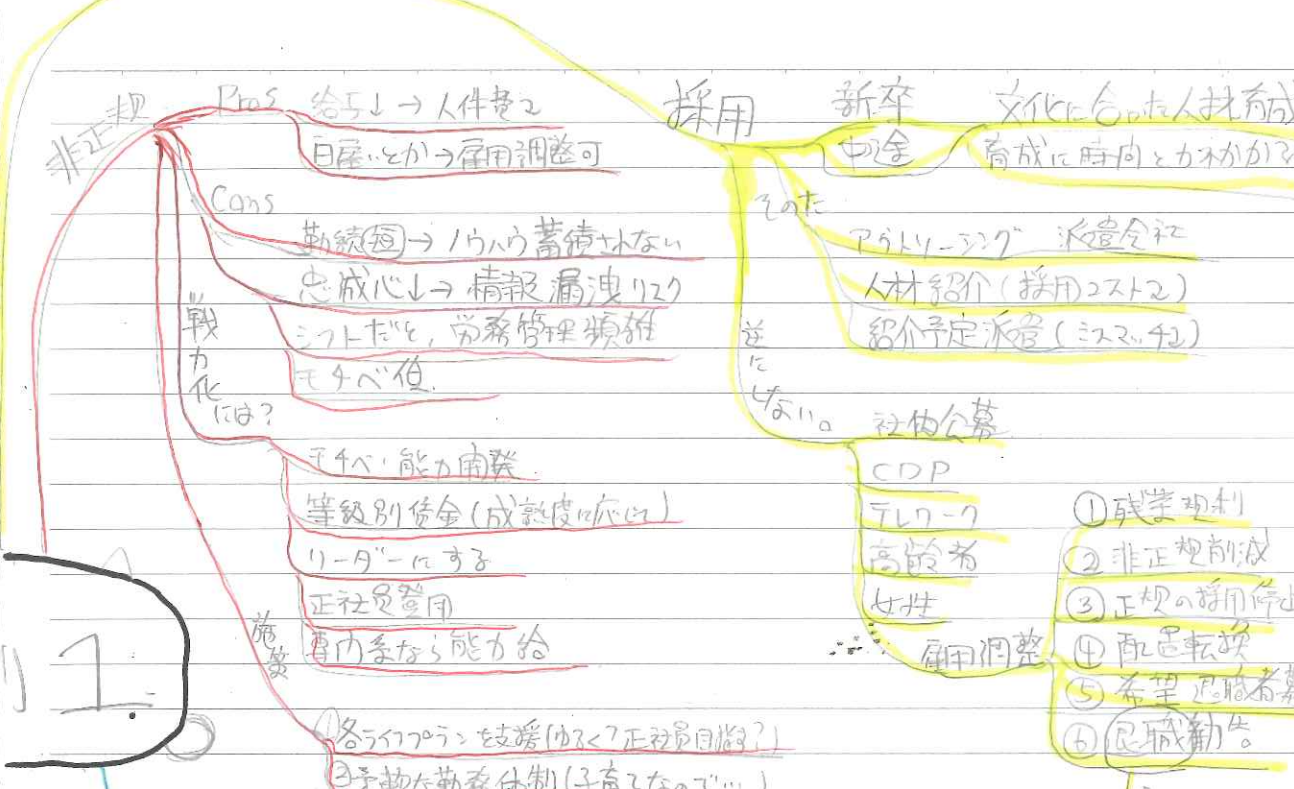 非正規
Pros
給与↓→人件費↓
日雇いとか→雇用調整可
Cons
勤続短→ノウハウ蓄積されない
忠誠心↓→情報漏洩リスク
シフトだと、労務管理煩雑
モチベ低
戦力化には?
モチベ・能力開発
等級別賃金(成熟度に応じて)
リーダーにする
正社員登用
専門系なら能力給
施策
①各ライフプランを支援(ゆるく?正社員目指す?)
②柔軟な勤務体制(子育てなので…)
採用
新卒
中途
文化に合った人材育成
育成に時間とカネかかる
そのた
アウトソーシング 派遣会社
人材紹介(採用コスト↓)
紹介予定派遣(ミスマッチ↓)
逆に
しない。
社内公募
CDP
テレワーク
高齢者
女性
雇用調整
①残業規制
②非正規削減
③正規の採用停止
④配置転換
⑤希望退職者募
⑥退職勧告
1.